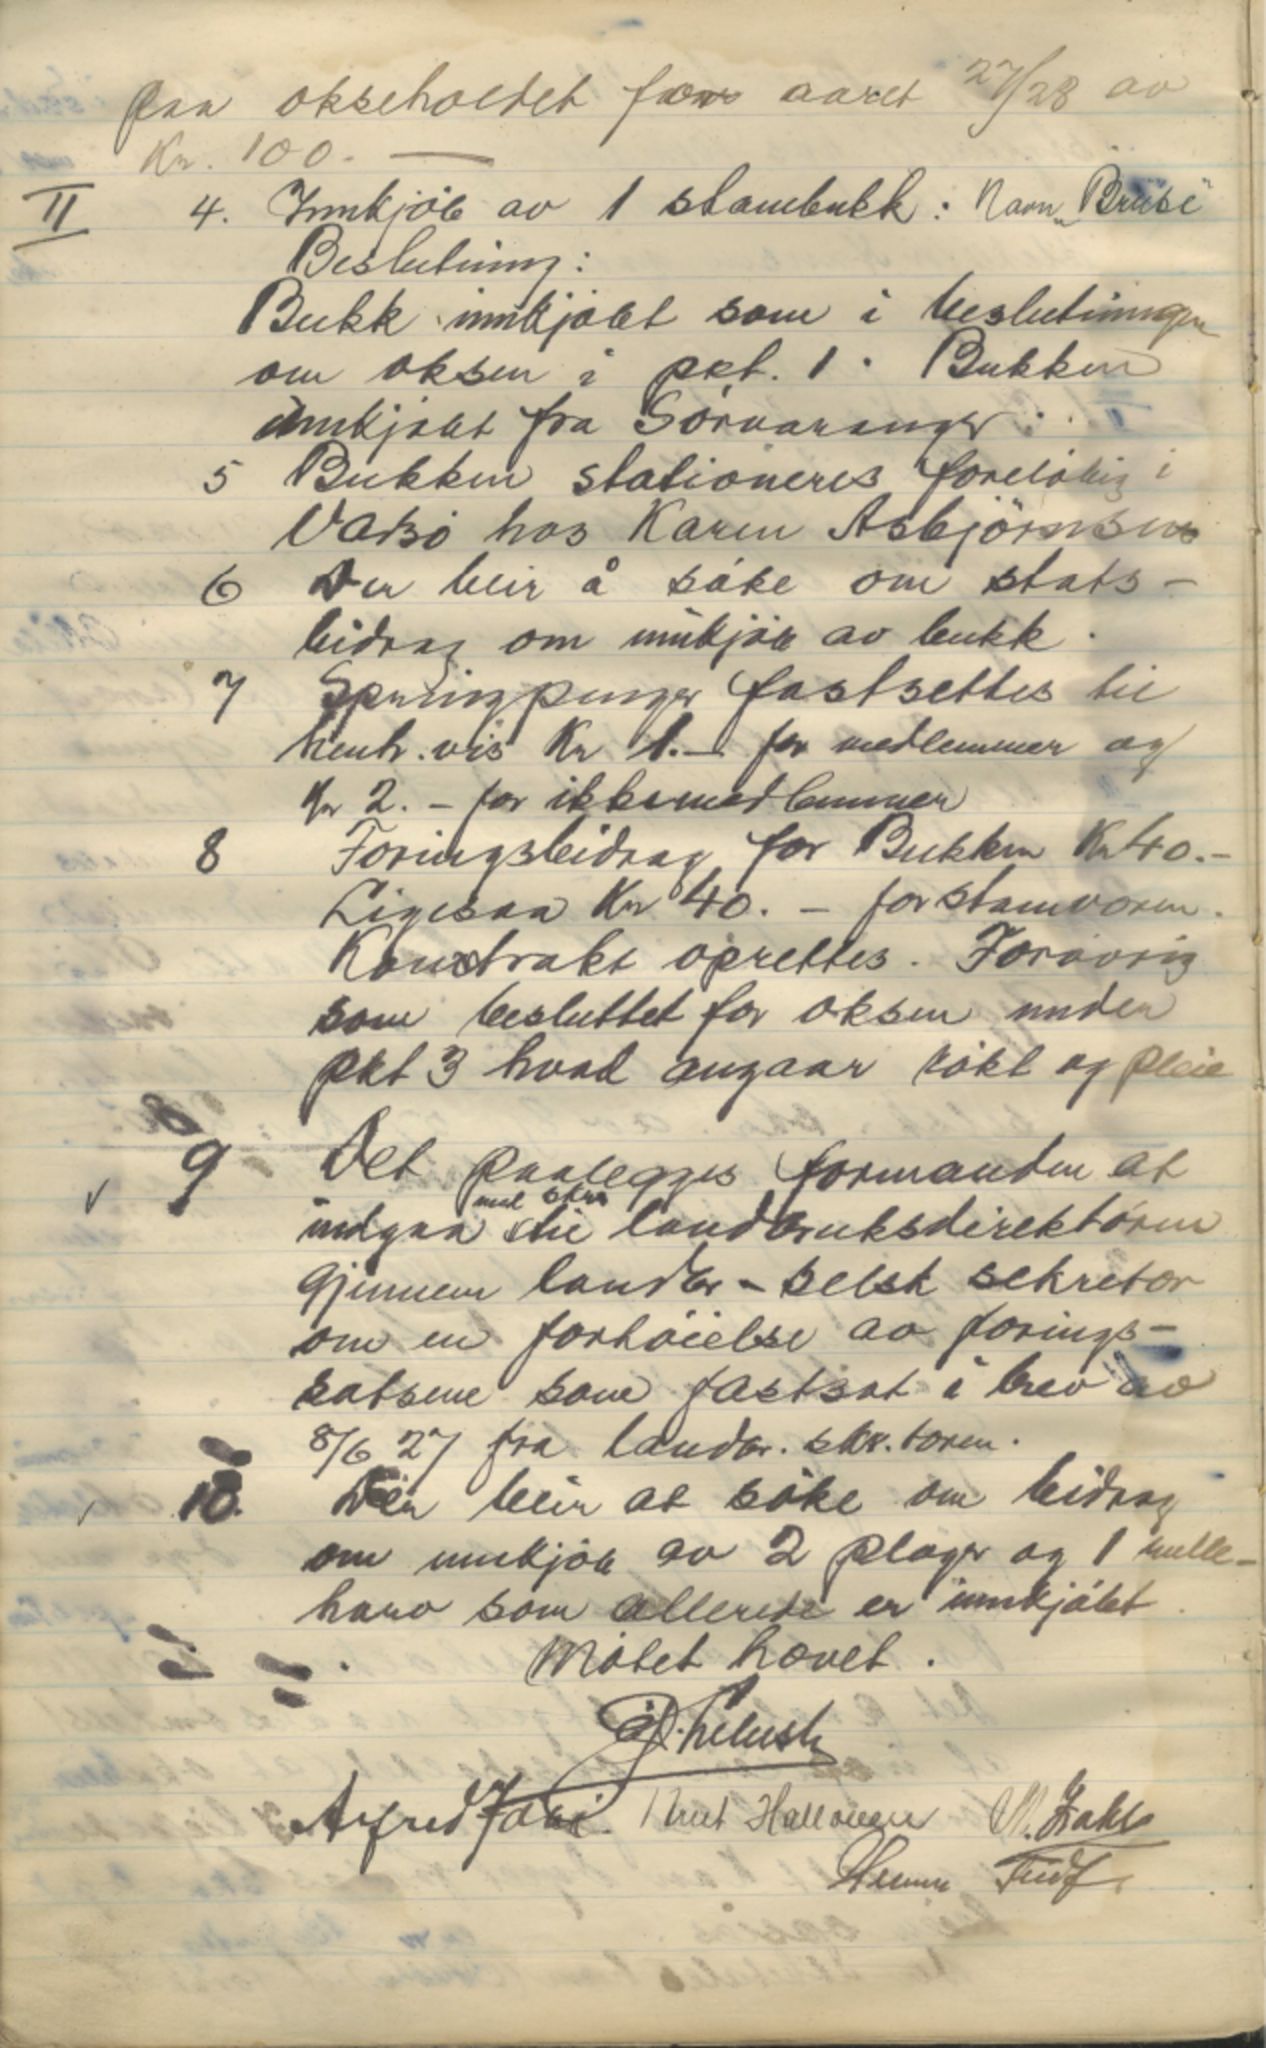 paa okseholdet for aaret 27/28 av
Kr. 100.—
II 4. Innkjöb av 1 stambukk: Navn „Bruse"
Beslutning:
Bukk innkjöbt som i beslutningen
om oksen i pkt. 1. Bukken
innkjöbt fra Sörvaranger.
5 Bukken stationeres foreløbig i
Vadsö hos Karen Asbjörnsen
6 Der blir å söke om stats-
bidrag om innkjöb av bukk.
7 Springpenger fastsettes til
henh.vis Kr 1.— for medlemmer og
Kr 2.— for ikkemedlemmer
8 Foringsbidrag for Bukken Kr 40.—
Ligesaa Kr 40.— for stamværen.
Kontrakt oprettes. Forövrig
som besluttet for oksen under
pkt 3 hvad angaar rökt og pleie
9 Det paalegges formanden at
med skr.
indgaa til landbruksdirektören
gjennem landbr-selsk sekretær
om en forhöielse av forings-
satsene som fastsat i brev av
8/6 27 fra landbr. skr.tæren.
10. Der blir at söke om bidrag
om innkjöb av 2 ploger og 1 rulle-
harv som allerede er innkjöbt.
Mötet hævet.
Alfred Jaki. Knut Halonen M. Zahl